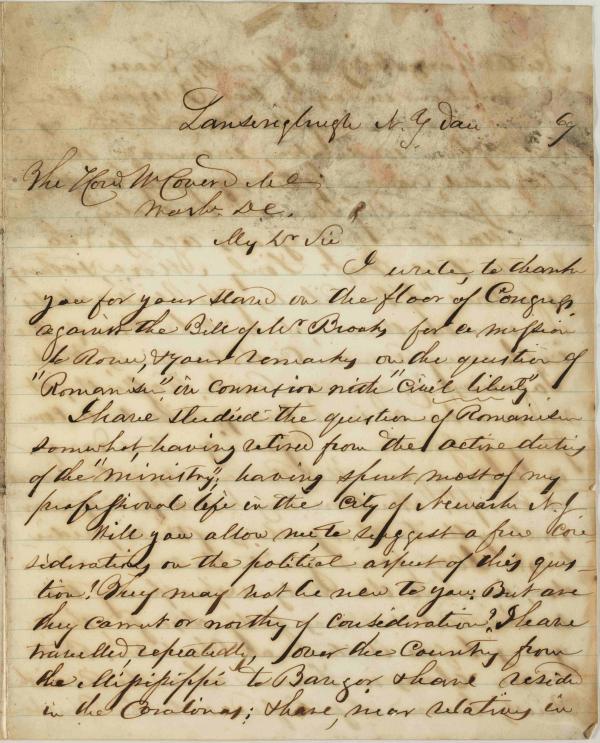 Lansingburgh N.Y Jan 69
The Hon. Wm Covern M C
Wash. D C.
My Dr Sir
I write, to thank
you for your stand on the floor of Congress
against the Bill of Mr Brooks, for a mission
to Rome, & your remarks on the question of
"Romanism", in connexion with "civil liberty"
I have studied the question of Romanism
somewhat, having retired from the active duties
of the "ministry"; having spent most of my
professional life in the City of Newark N.J
Will you allow me, to suggest a few con-
siderations on the political aspect of this ques-
tion! They may not be new to you: But are
they correct or worthy of consideration? I have
travelled, repeatedly, over the Country from
the Mississippi to Bangor & have resided
in the Carolinas; & have, near relatives in